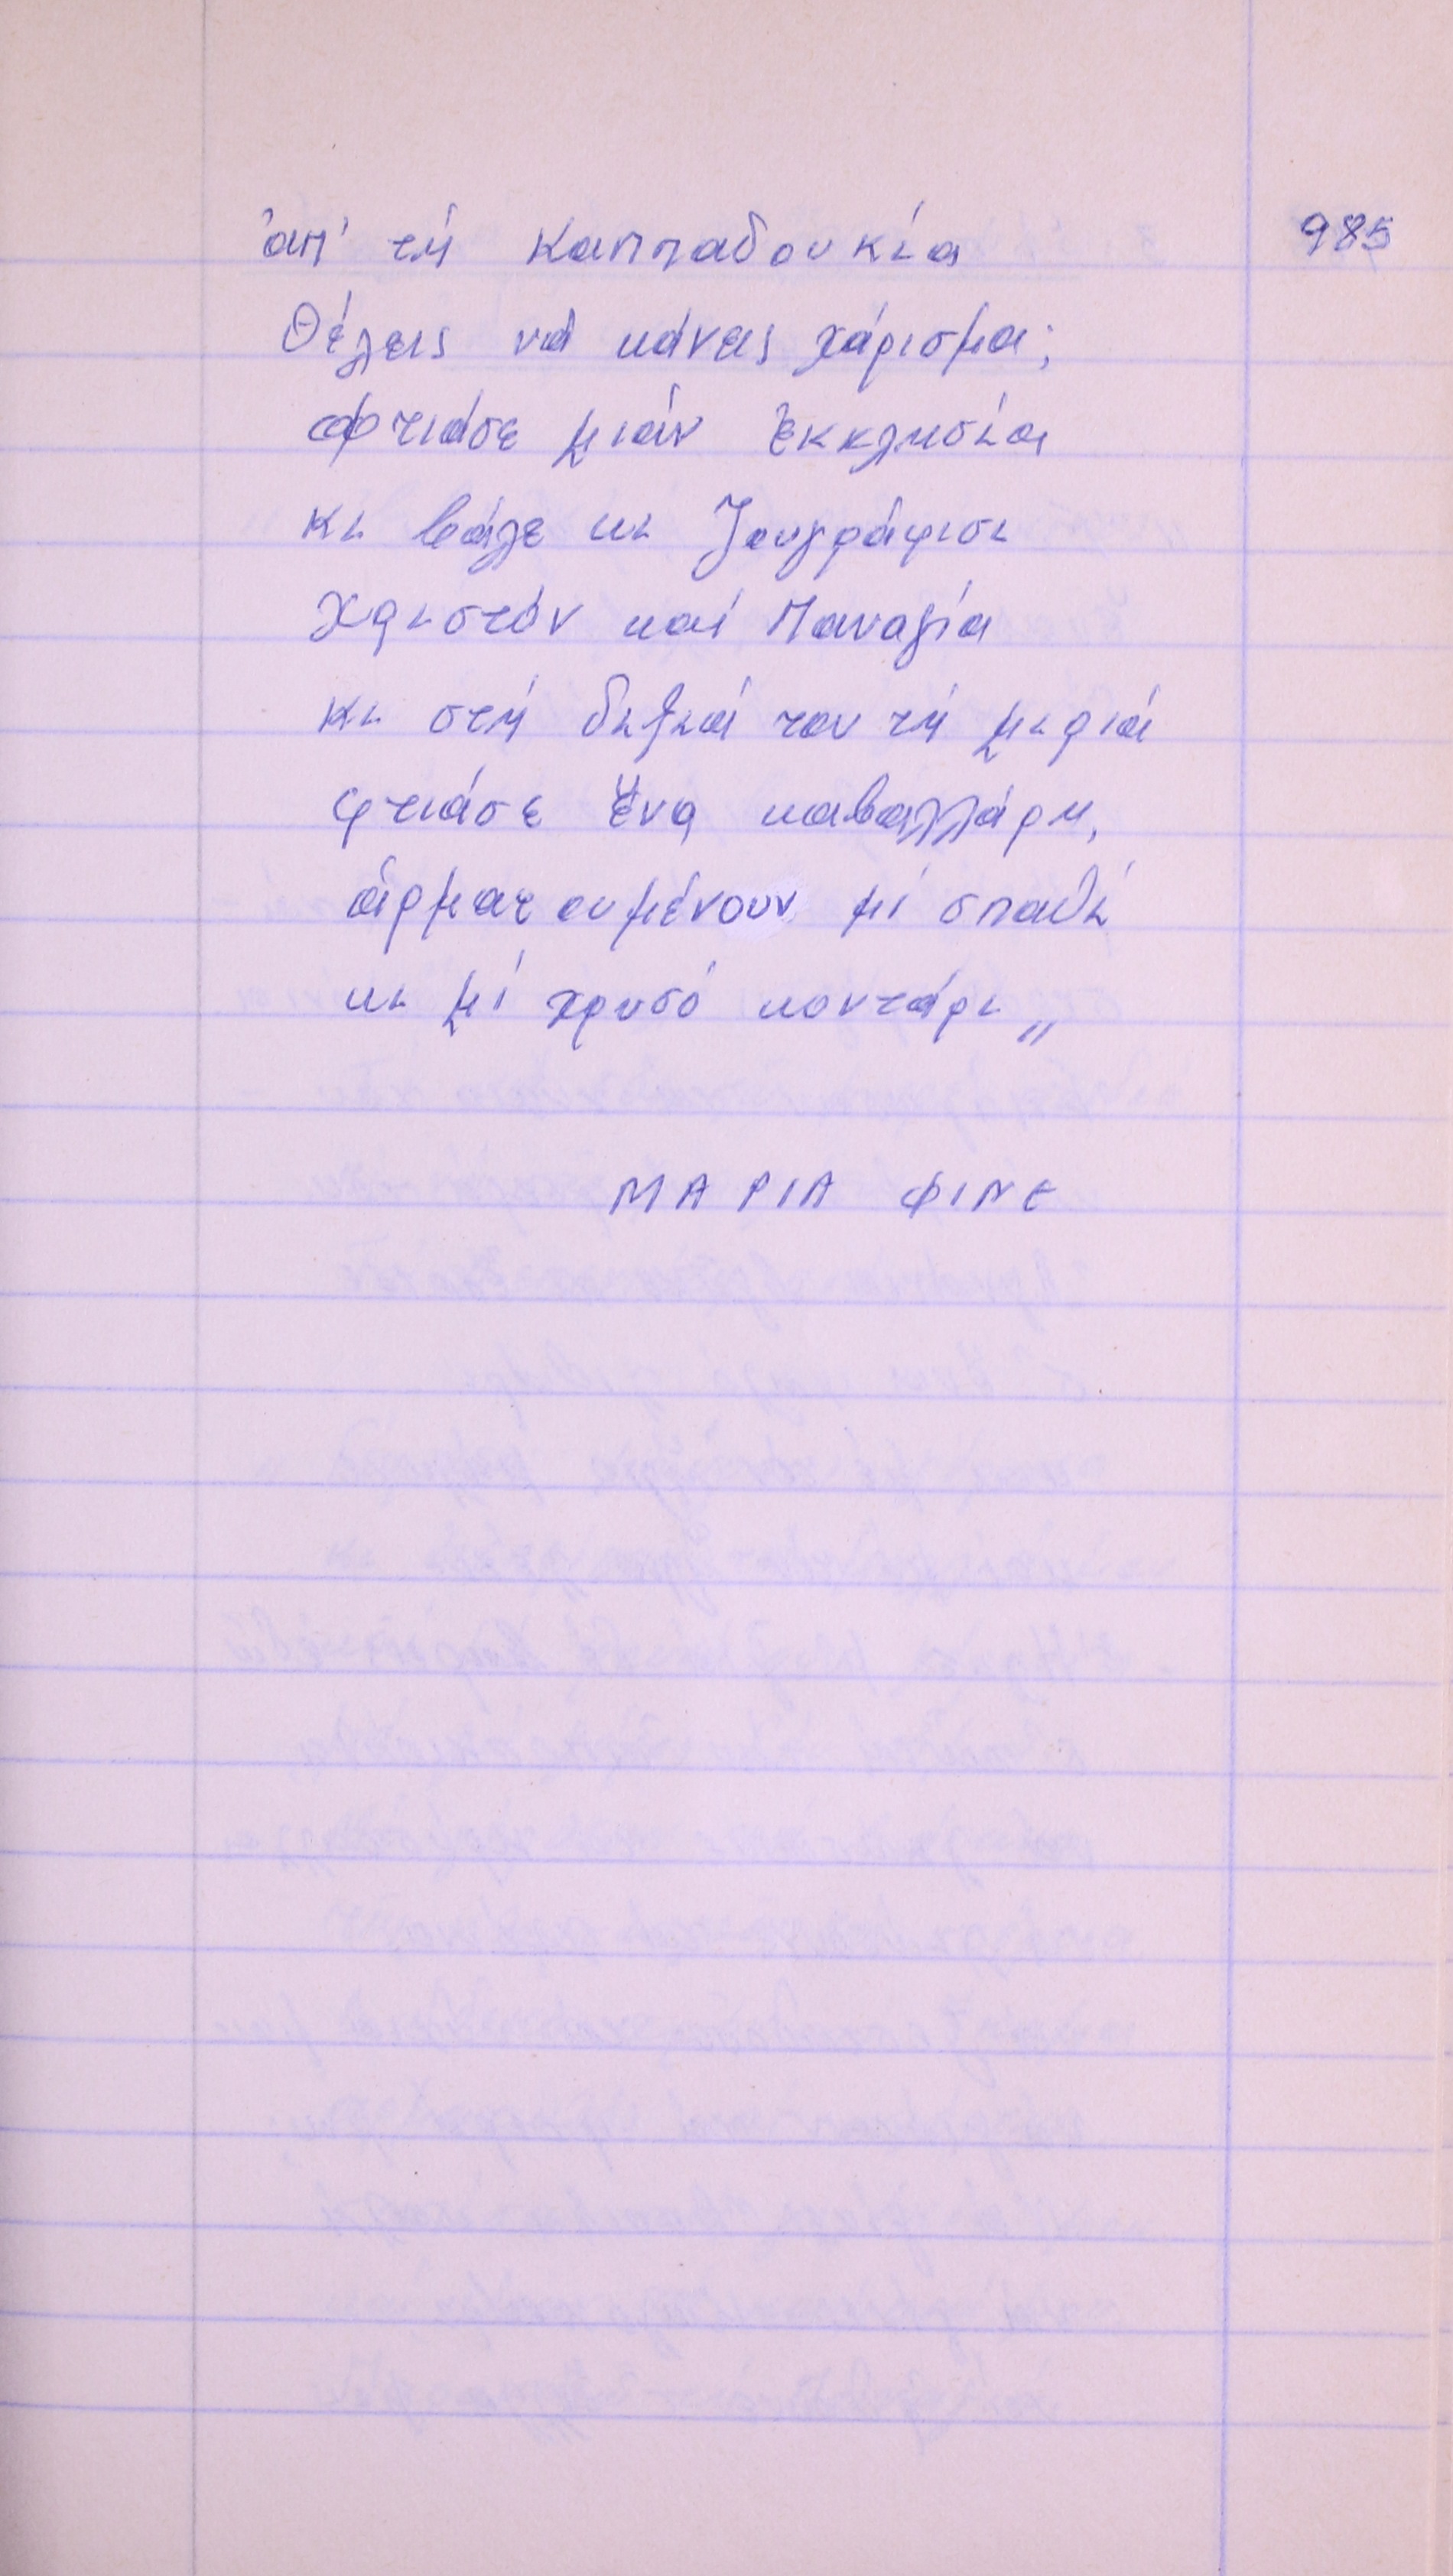 ἀπ' τή Καππαδουκία 985
Θέλεις νά κάνεις χάρισμα;
φτιάσε μιάν ἐκκλησία
κι βάλε κι ζουγράφισι
Χριστόν καί Παναγία
κι στή διξιά του τή μιριά
φτιάσε ἕνα καβαλλάρη,
ἀρματουμένουν μί σπαθί
κι μί χρυσό κοντάρι„
ΜΑΡΙΑ ΦΙΝΕ